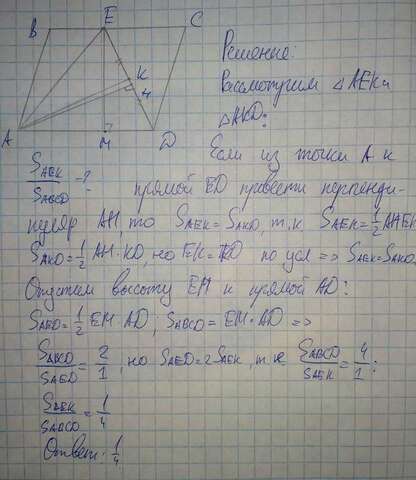 B E C
K
H
A M D
Решение:
Рассмотрим △AEK и
△AKD:
Если из точки A к
S_AEK/S_ABCD - ? прямой ED провести перпенди-
куляр AH, то S_AEK = S_AKD, т.к S_AEK = 1/2 AH·EK
S_AKD = 1/2 AH·KD, но EK = KD по усл => S_AEK = S_AKD.
Опустим высоту EM к прямой AD:
S_AED = 1/2 EM·AD; S_ABCD = EM·AD =>
S_ABCD/S_AED = 2/1, но S_AED = 2 S_AEK, т.е S_ABCD/S_AEK = 4/1;
S_AEK/S_ABCD = 1/4
Ответ: 1/4